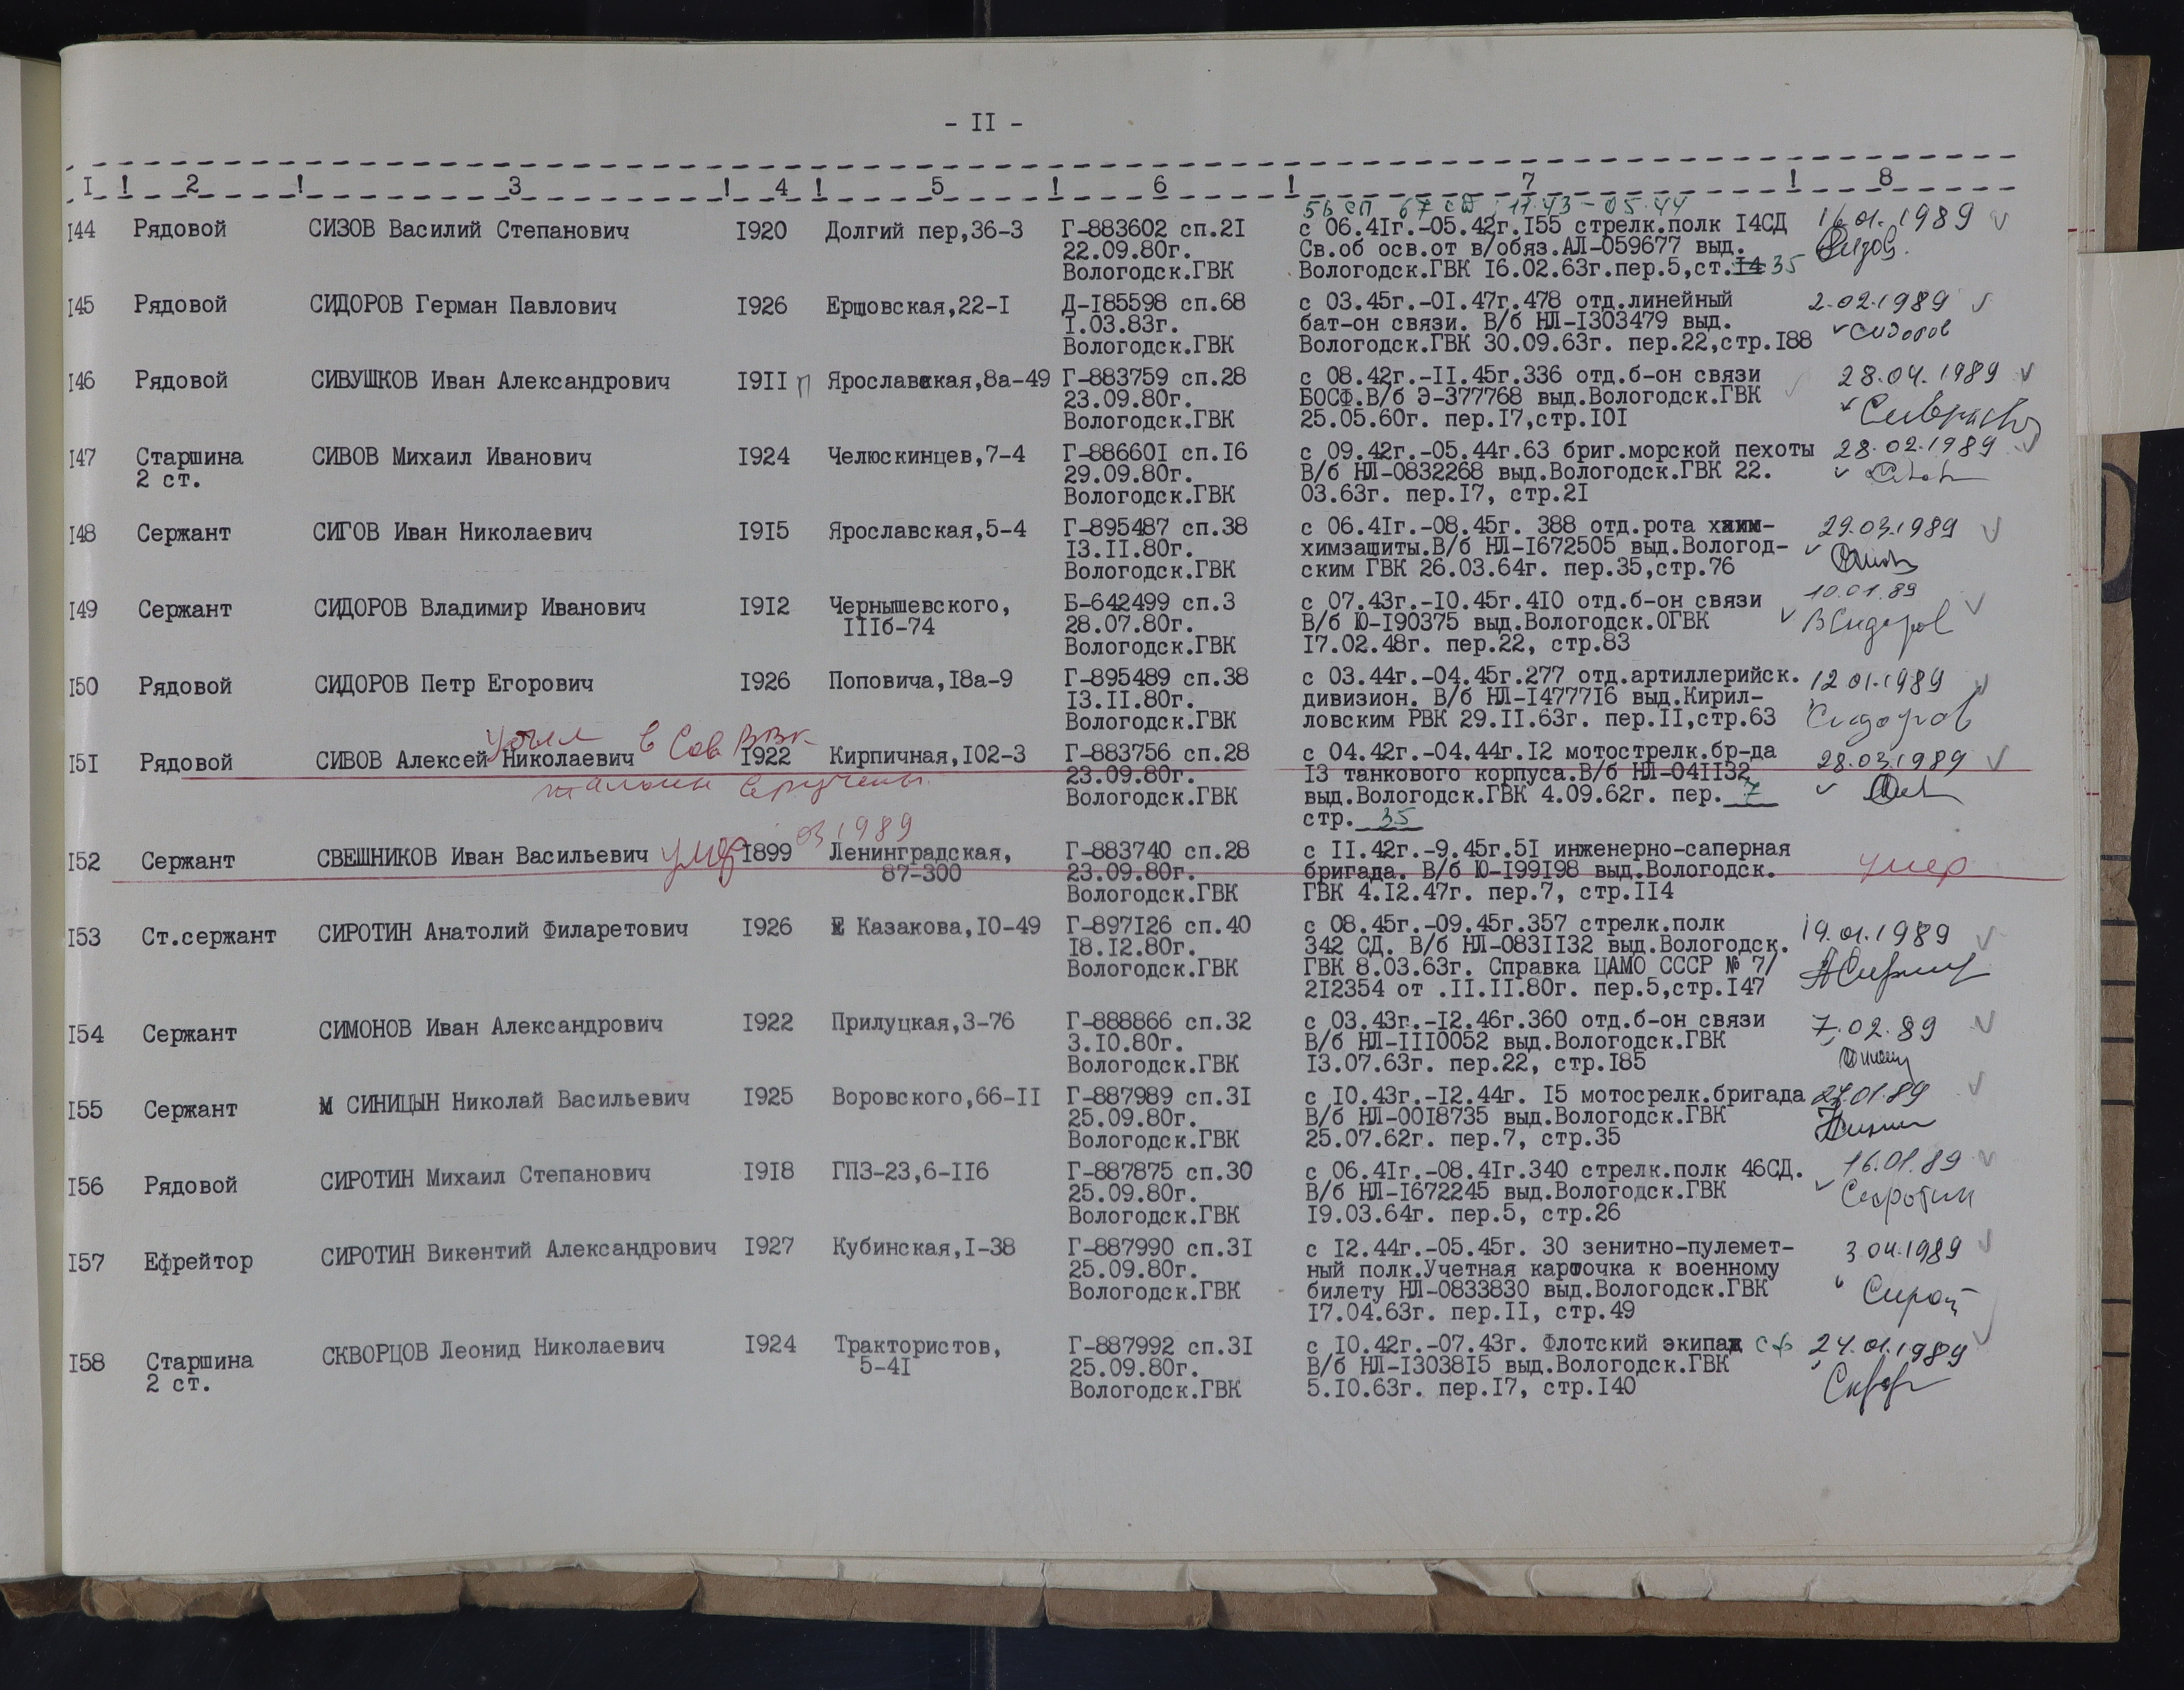 - II -
I ! 2 ! 3 ! 4 ! 5 ! 6 ! 7 ! 8
56 сп 67 сд 11.43 - 05.44
I44 Рядовой СИЗОВ Василий Степанович I920 Долгий пер,36-3 Г-883602 сп.2I с 06.4Iг.-05.42г.I55 стрелк.полк I4СД 16.01.1989
22.09.80г. Св.об осв.от в/обяз.АЛ-059677 выд. Сизов.
Вологодск.ГВК Вологодск.ГВК I6.02.63г.пер.5,ст.I4 35
I45 Рядовой СИДОРОВ Герман Павлович I926 Ершовская,22-I Д-I85598 сп.68 с 03.45г.-0I.47г.478 отд.линейный 2.02.1989
I.03.83г. бат-он связи. В/б НЛ-I303479 выд. Сидоров
Вологодск.ГВК Вологодск.ГВК 30.09.63г. пер.22,стр.I88
I46 Рядовой СИВУШКОВ Иван Александрович I9II п Ярославская,8а-49 Г-883759 сп.28 с 08.42г.-II.45г.336 отд.б-он связи 28.04.1989
23.09.80г. БОСФ.В/б Э-377768 выд.Вологодск.ГВК
Вологодск.ГВК 25.05.60г. пер.I7,стр.I0I
I47 Старшина СИВОВ Михаил Иванович I924 Челюскинцев,7-4 Г-88660I сп.I6 с 09.42г.-05.44г.63 бриг.морской пехоты 28.02.1989
2 ст. 29.09.80г. В/б НЛ-0832268 выд.Вологодск.ГВК 22.
Вологодск.ГВК 03.63г. пер.I7, стр.2I
I48 Сержант СИГОВ Иван Николаевич I9I5 Ярославская,5-4 Г-895487 сп.38 с 06.4Iг.-08.45г. 388 отд.рота хxим- 29.03.1989
I3.II.80г. химзащиты.В/б НЛ-I672505 выд.Вологод-
Вологодск.ГВК ским ГВК 26.03.64г. пер.35,стр.76
I49 Сержант СИДОРОВ Владимир Иванович I9I2 Чернышевского, Б-642499 сп.3 с 07.43г.-I0.45г.4I0 отд.б-он связи 10.01.89
IIIб-74 28.07.80г. В/б Ю-I90375 выд.Вологодск.ОГВК ВСидоров
Вологодск.ГВК I7.02.48г. пер.22, стр.83
I50 Рядовой СИДОРОВ Петр Егорович I926 Поповича,I8а-9 Г-895489 сп.38 с 03.44г.-04.45г.277 отд.артиллерийск. 12.01.1989
I3.II.80г. дивизион. В/б НЛ-I4777I6 выд.Кирил-
Вологодск.ГВК ловским РВК 29.II.63г. пер.II,стр.63 Сидоров
Убыл в Сов РВК
I5I Рядовой СИВОВ Алексей Николаевич I922 Кирпичная,I02-3 Г-883756 сп.28 с 04.42г.-04.44г.I2 мотострелк.бр-да 28.03.1989
23.09.80г. I3 танкового корпуса.В/б НЛ-04II32
талоны вручены. Вологодск.ГВК выд.Вологодск.ГВК 4.09.62г. пер. 7
стр. 35
03 1989
I52 Сержант СВЕШНИКОВ Иван Васильевич умер I899 Ленинградская, Г-883740 сп.28 с II.42г.-9.45г.5I инженерно-саперная умер
87-300 23.09.80г. бригада. В/б Ю-I99I98 выд.Вологодск.
Вологодск.ГВК ГВК 4.I2.47г. пер.7, стр.II4
I53 Ст.сержант СИРОТИН Анатолий Филаретович I926 Казакова,I0-49 Г-897I26 сп.40 с 08.45г.-09.45г.357 стрелк.полк 19.01.1989
I8.I2.80г. 342 СД. В/б НЛ-083II32 выд.Вологодск.
Вологодск.ГВК ГВК 8.03.63г. Справка ЦАМО СССР № 7/
2I2354 от .II.II.80г. пер.5,стр.I47
I54 Сержант СИМОНОВ Иван Александрович I922 Прилуцкая,3-76 Г-888866 сп.32 с 03.43г.-I2.46г.360 отд.б-он связи 7.02.89
3.I0.80г. В/б НЛ-III0052 выд.Вологодск.ГВК
Вологодск.ГВК I3.07.63г. пер.22, стр.I85
I55 Сержант СИНИЦЫН Николай Васильевич I925 Воровского,66-II Г-887989 сп.3I с I0.43г.-I2.44г. I5 мотосрелк.бригада
25.09.80г. В/б НЛ-00I8735 выд.Вологодск.ГВК
Вологодск.ГВК 25.07.62г. пер.7, стр.35
I56 Рядовой СИРОТИН Михаил Степанович I9I8 ГПЗ-23,6-II6 Г-887875 сп.30 с 06.4Iг.-08.4Iг.340 стрелк.полк 46СД. 16.01.89
25.09.80г. В/б НЛ-I672245 выд.Вологодск.ГВК Сиротин
Вологодск.ГВК I9.03.64г. пер.5, стр.26
I57 Ефрейтор СИРОТИН Викентий Александрович I927 Кубинская,I-38 Г-887990 сп.3I с I2.44г.-05.45г. 30 зенитно-пулемет- 3.04.1989
25.09.80г. ный полк.Учетная карточка к военному
Вологодск.ГВК билету НЛ-0833830 выд.Вологодск.ГВК
I7.04.63г. пер.II, стр.49
I58 Старшина СКВОРЦОВ Леонид Николаевич I924 Трактористов, Г-887992 сп.3I с I0.42г.-07.43г. Флотский экипаж сф 24.01.1989
2 ст. 5-4I 25.09.80г. В/б НЛ-I3038I5 выд.Вологодск.ГВК
Вологодск.ГВК 5.I0.63г. пер.I7, стр.I40